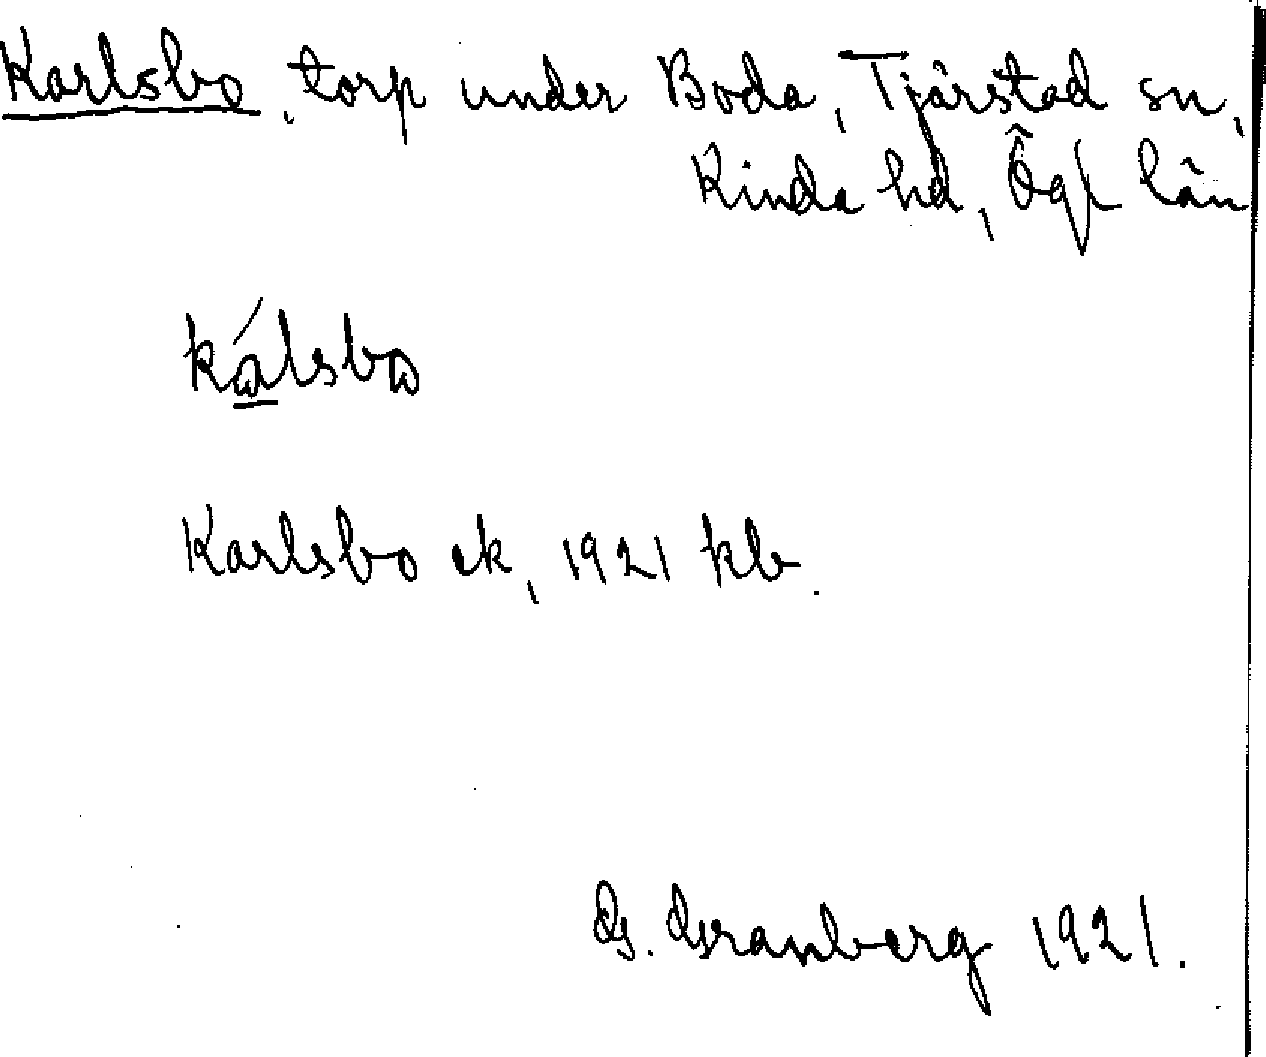 Karlsbo, torp under Boda, Tjärstad sn,
Kinda hd, Ögl län
kálsbo
Karlsbo ek, 1921 kb.
G. Granberg 1921.